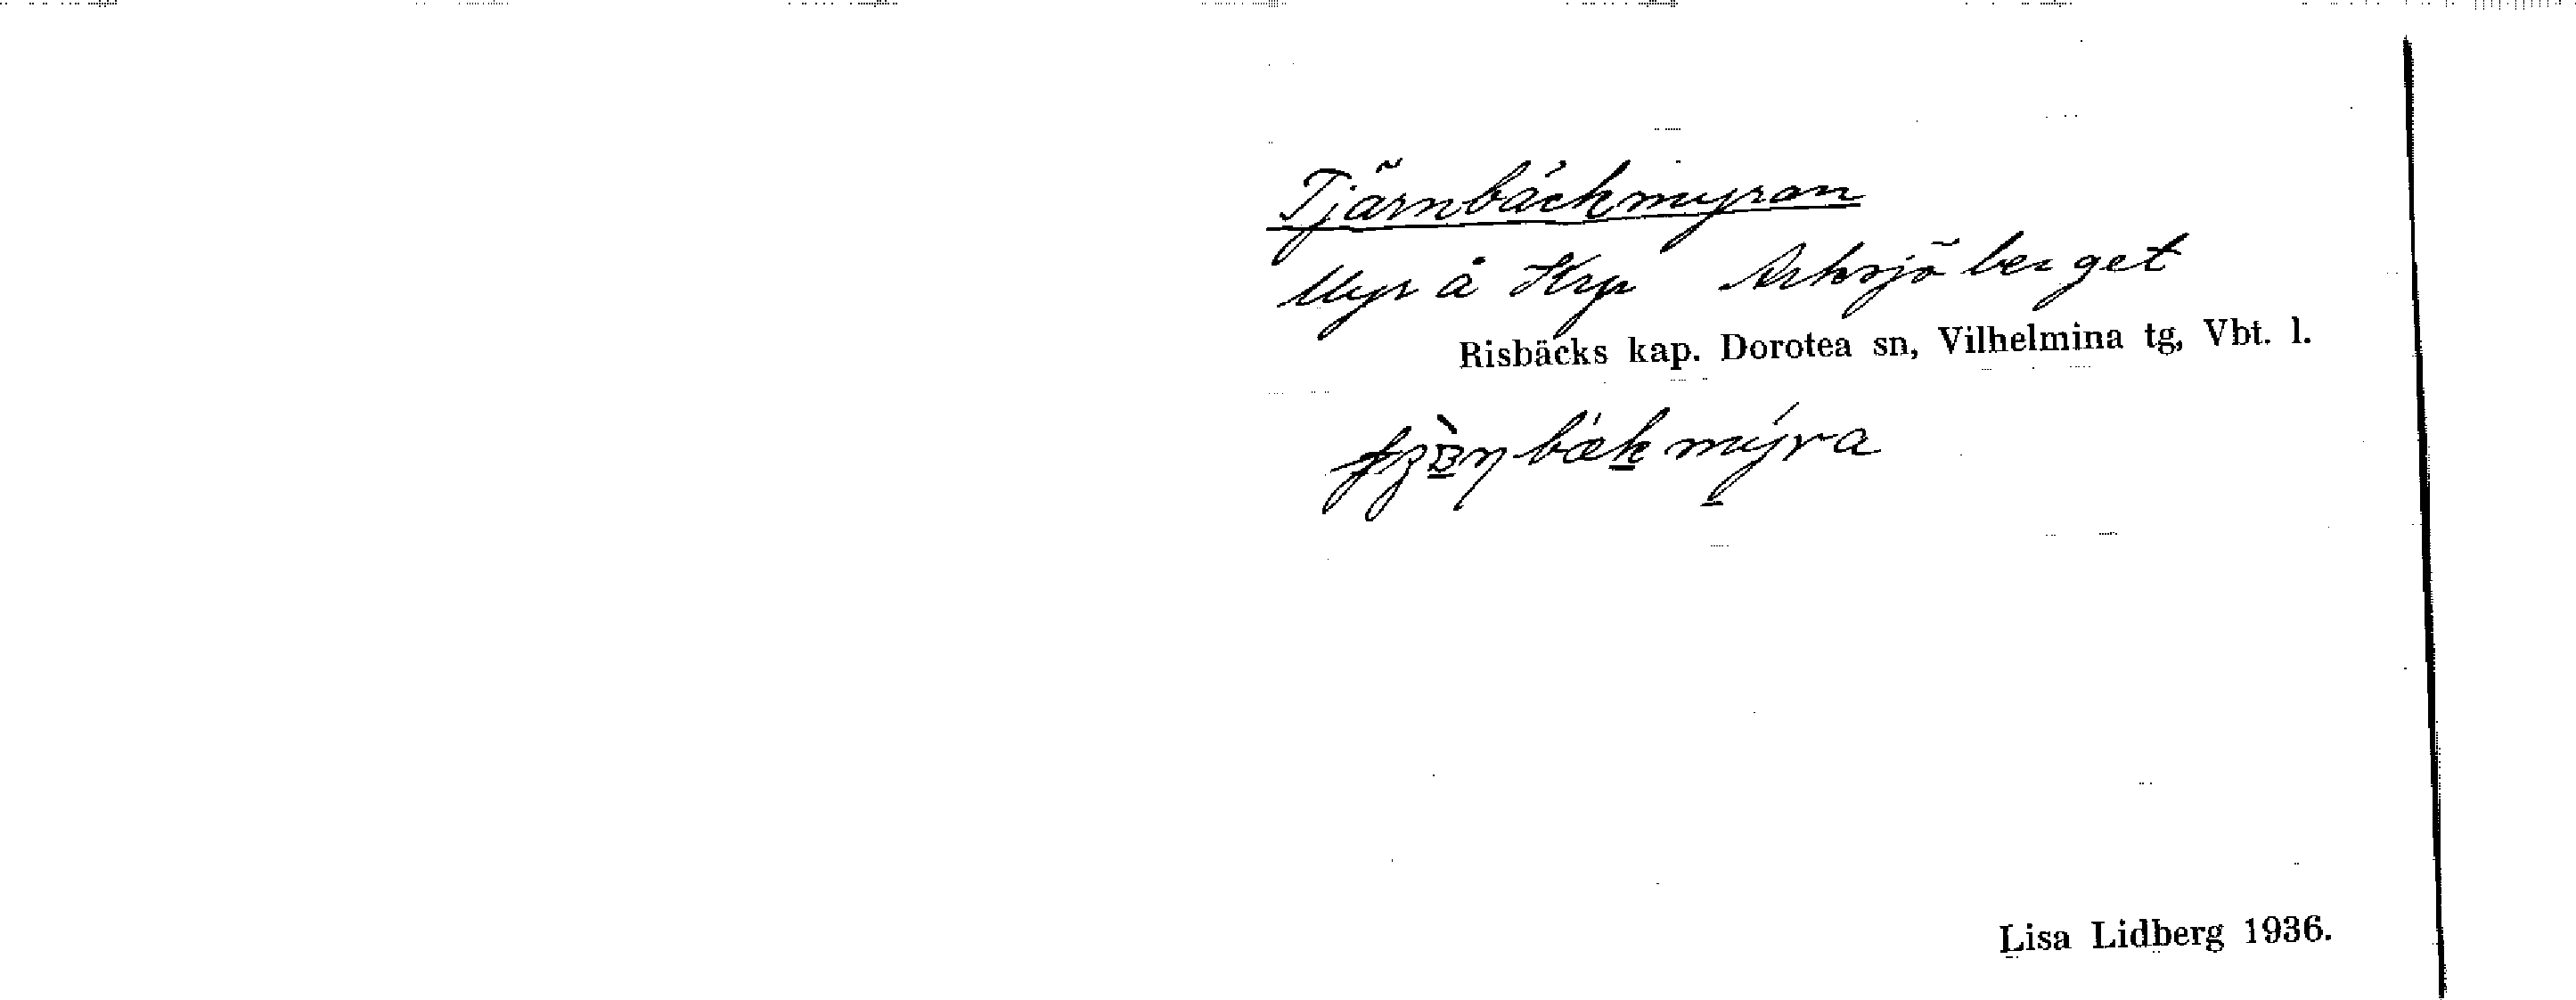 Tjärnbäckmyran
Myr å Krp Arksjöberget
Risbäcks kap. Dorotea sn, Vilhelmina tg, Vbt. l.
Lisa Lidberg 1936.